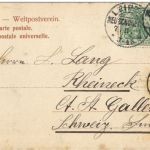 — Weltpostverein.
rte postale.
postale universelle.
Herrn J. Lang
Rheineck
Ct. St. Gallen
Schweiz.